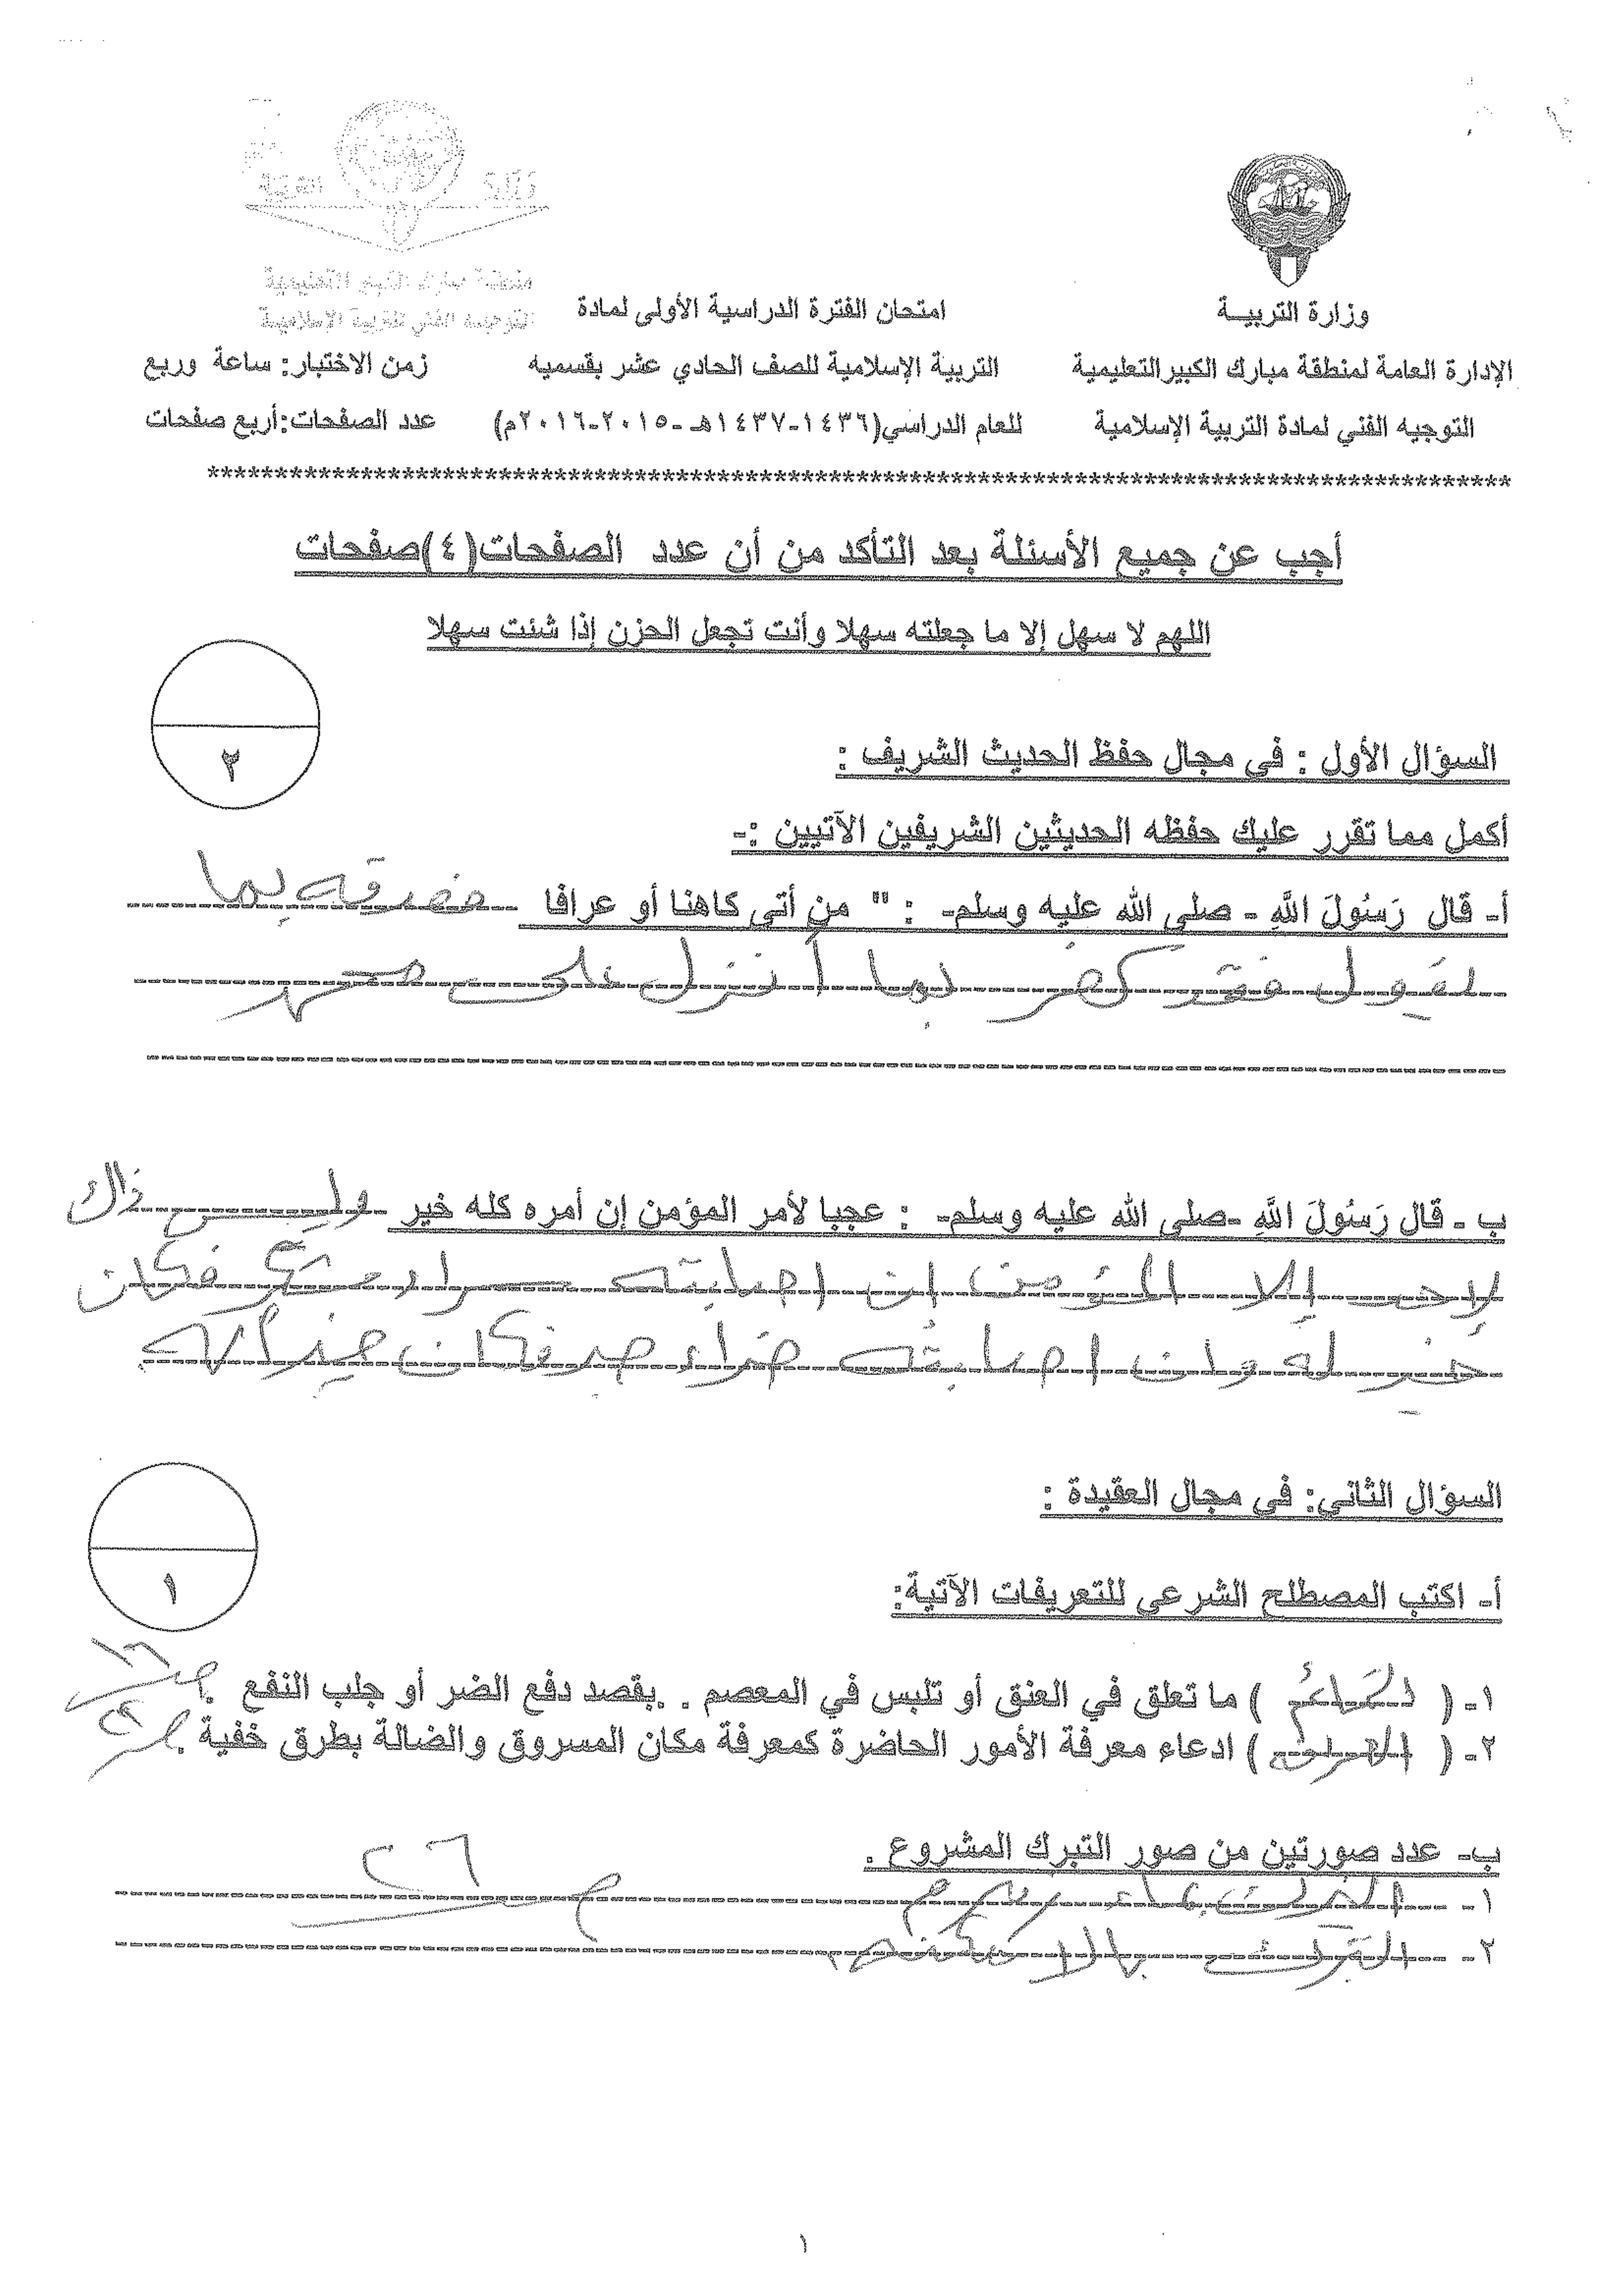 وزارة التربية
منطقة مبارك الكبير التعليمية
التوجيه الفني للتربية الإسلامية
وزارة التربيـــة
امتحان الفترة الدراسية الأولى لمادة
الإدارة العامة لمنطقة مبارك الكبيرالتعليمية
التربية الإسلامية للصف الحادي عشر بقسميه
زمن الاختبار: ساعة وربع
التوجيه الفني لمادة التربية الإسلامية
للعام الدراسي(١٤٣٦-١٤٣٧هـ -٢٠١٥-٢٠١٦م)
عدد الصفحات:أربع صفحات
أجب عن جميع الأسئلة بعد التأكد من أن عدد الصفحات(٤)صفحات
اللهم لا سهل إلا ما جعلته سهلا وأنت تجعل الحزن إذا شئت سهلا
٢
السؤال الأول : في مجال حفظ الحديث الشريف :
أكمل مما تقرر عليك حفظه الحديثين الشريفين الآتيين :-
أ- قال رَسُولَ اللَّهِ - صلى الله عليه وسلم- : " من أتى كاهنا أو عرافا فصدقه بما
يقول فقد كفر بما أنزل على محمد
ب - قال رَسُولَ اللَّهِ -صلى الله عليه وسلم- : عجبا لأمر المؤمن إن أمره كله خير وليس ذاك
لإحد إلا المؤمن إن اصابته سراء شكر فكان
خير له وان اصابته ضراء صبر فكان خيرا له
السؤال الثاني: في مجال العقيدة :
١
أ- اكتب المصطلح الشرعي للتعريفات الآتية:
١- ( التمائم ) ما تعلق في العنق أو تلبس في المعصم . .بقصد دفع الضر أو جلب النفع .
٢- ( العرافة ) ادعاء معرفة الأمور الحاضرة كمعرفة مكان المسروق والضالة بطرق خفية .
ب- عدد صورتين من صور التبرك المشروع .
ص ٢٦
١- التبرك بماء زمزم
٢- التبرك
١